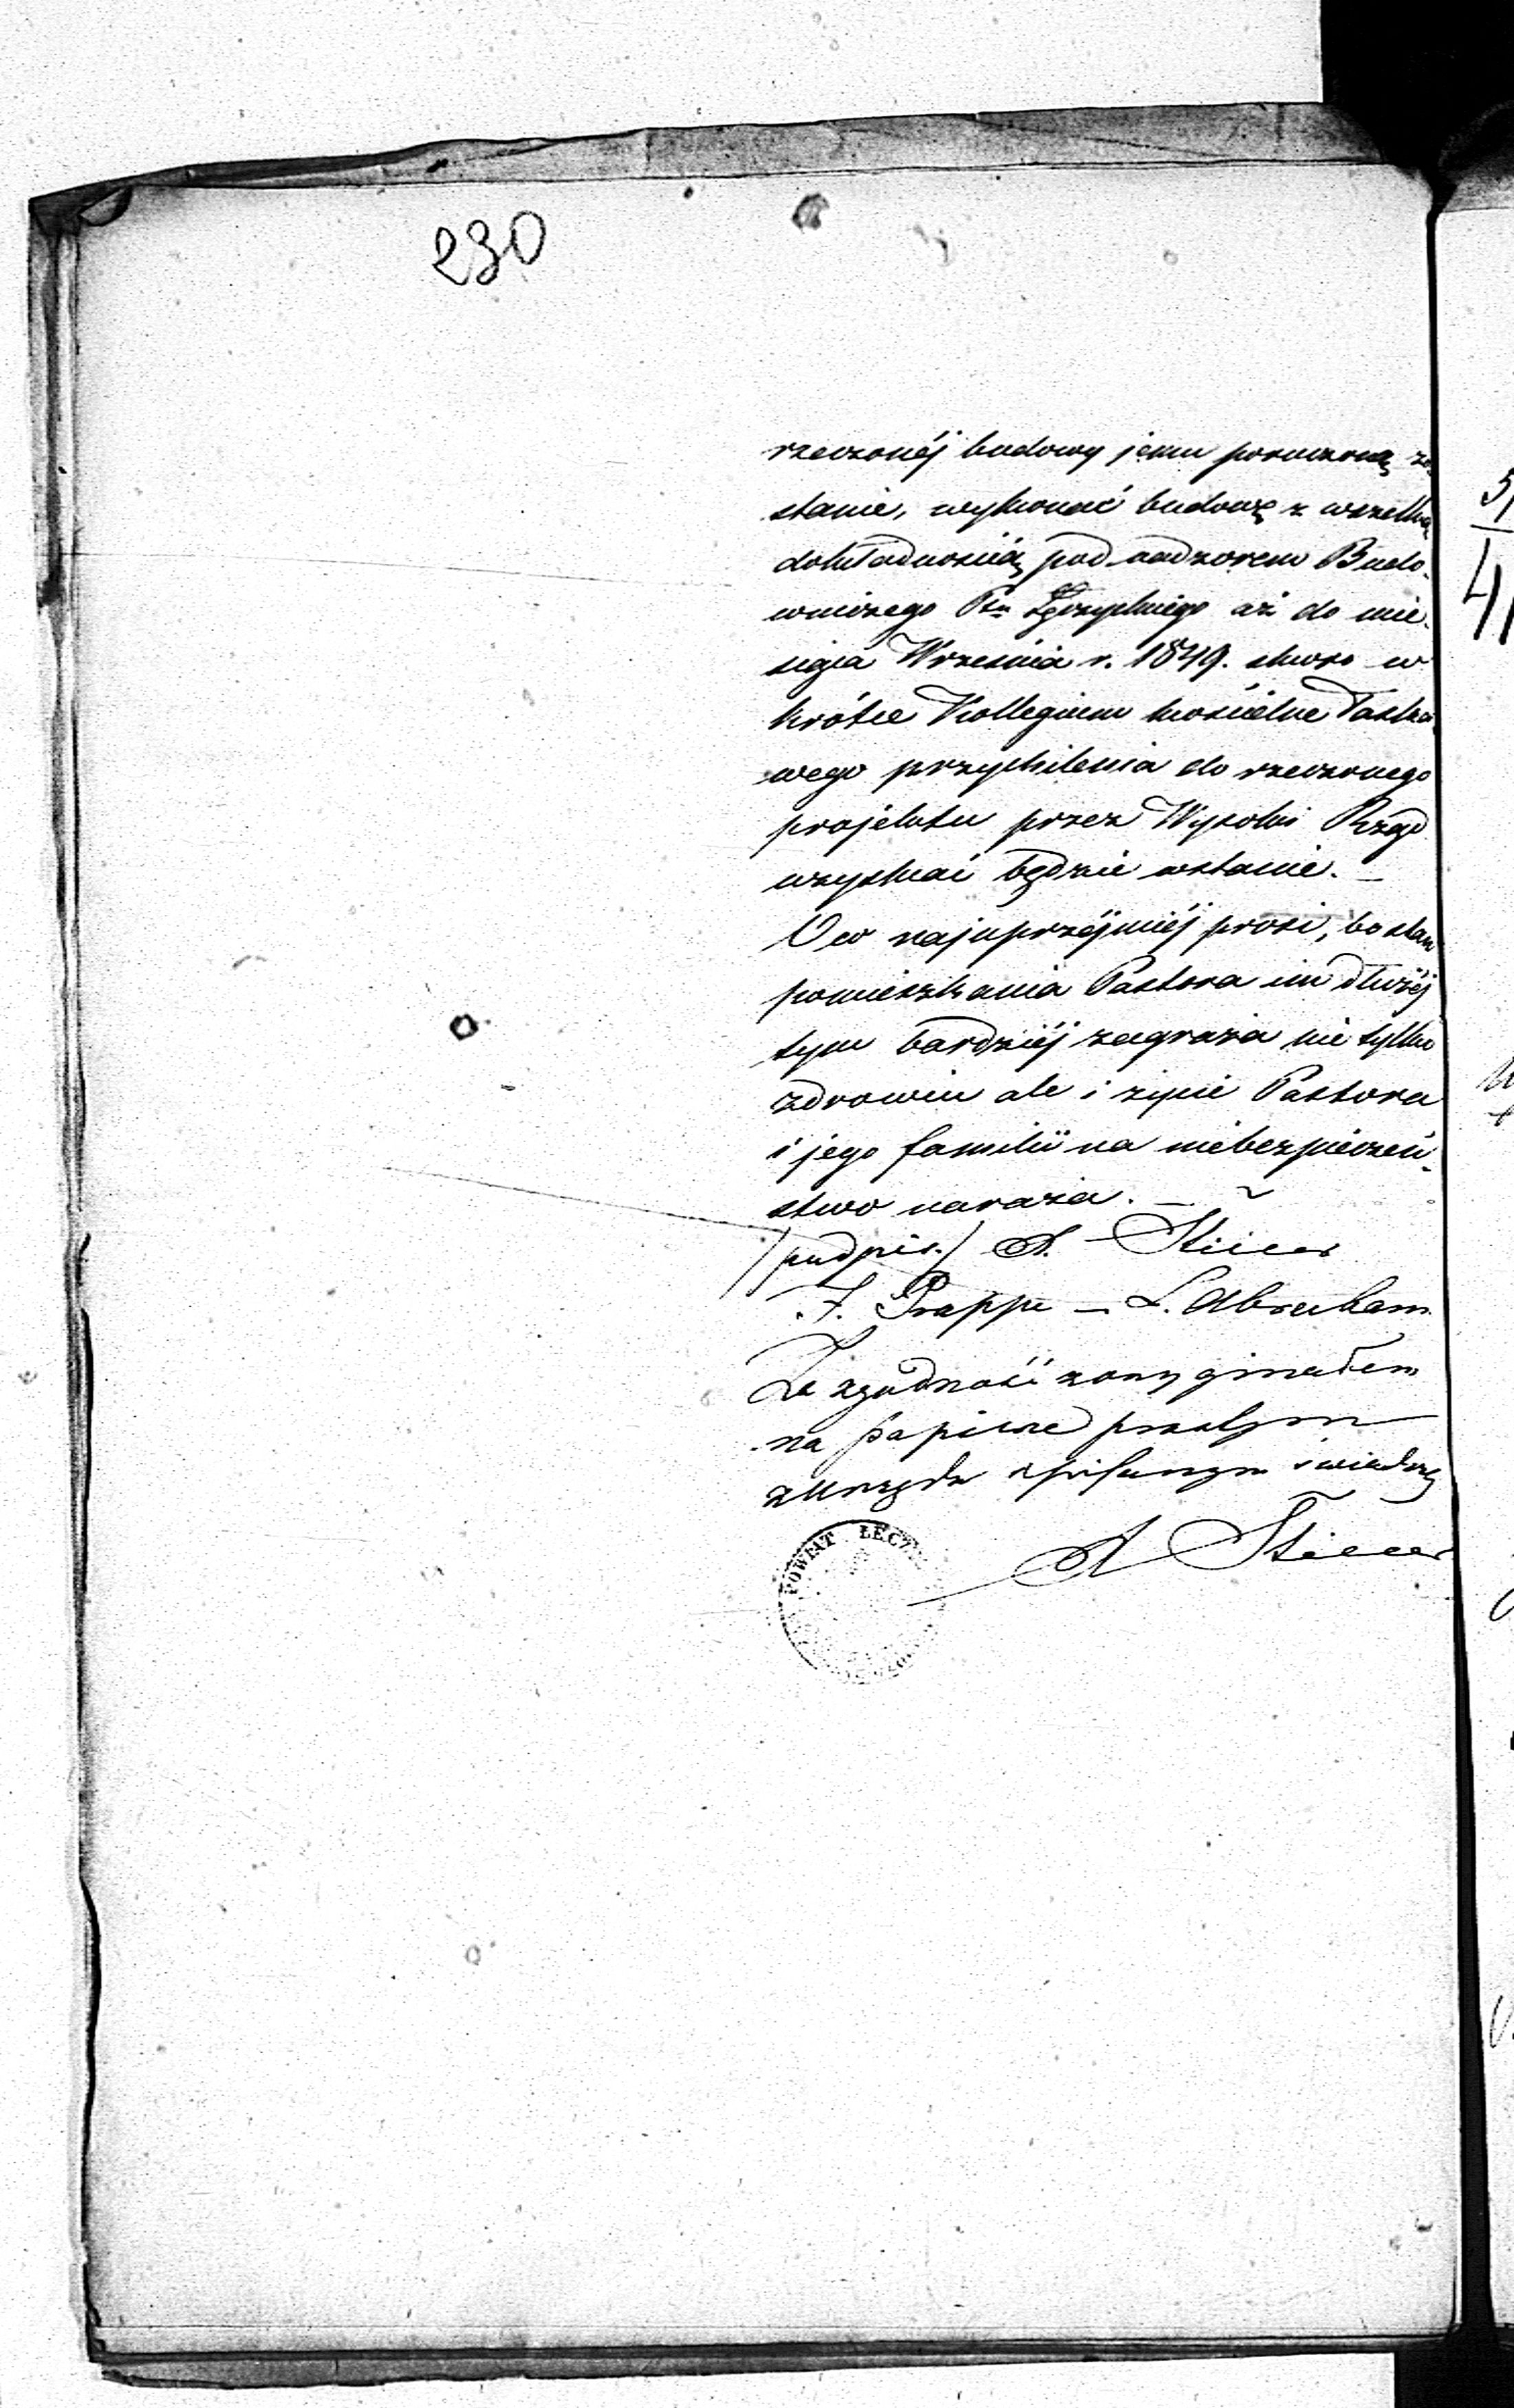 230
rzeczonéj budowy jemu poruczoną zo
stanie, wykonać budowę z wszelką
dokładnością pod nadzorem Budo-
wniczego Pna aż do mie-
siąca Września r. 1849. skoro w
krótce Kollegium kościelne łaska
wego przychilenia do rzeczonego
projektu przez Wysoki Rząd
uzyskać będzie wstanie. —
O co najuprzéjmiéj prosi, bo stan
pomieszkania Pastora im dłużéj
tym bardziéj zagraża nie tylko
zdrowiu ale i życie Pastora
i jego familii na niebezpieczeń-
stwo naraża. —
/podpis./ A.
J. Prappe — L. Abraham
Za zgodność z oryginałem
na papierze
świadczę
POWIAT ŁĘCZ
A